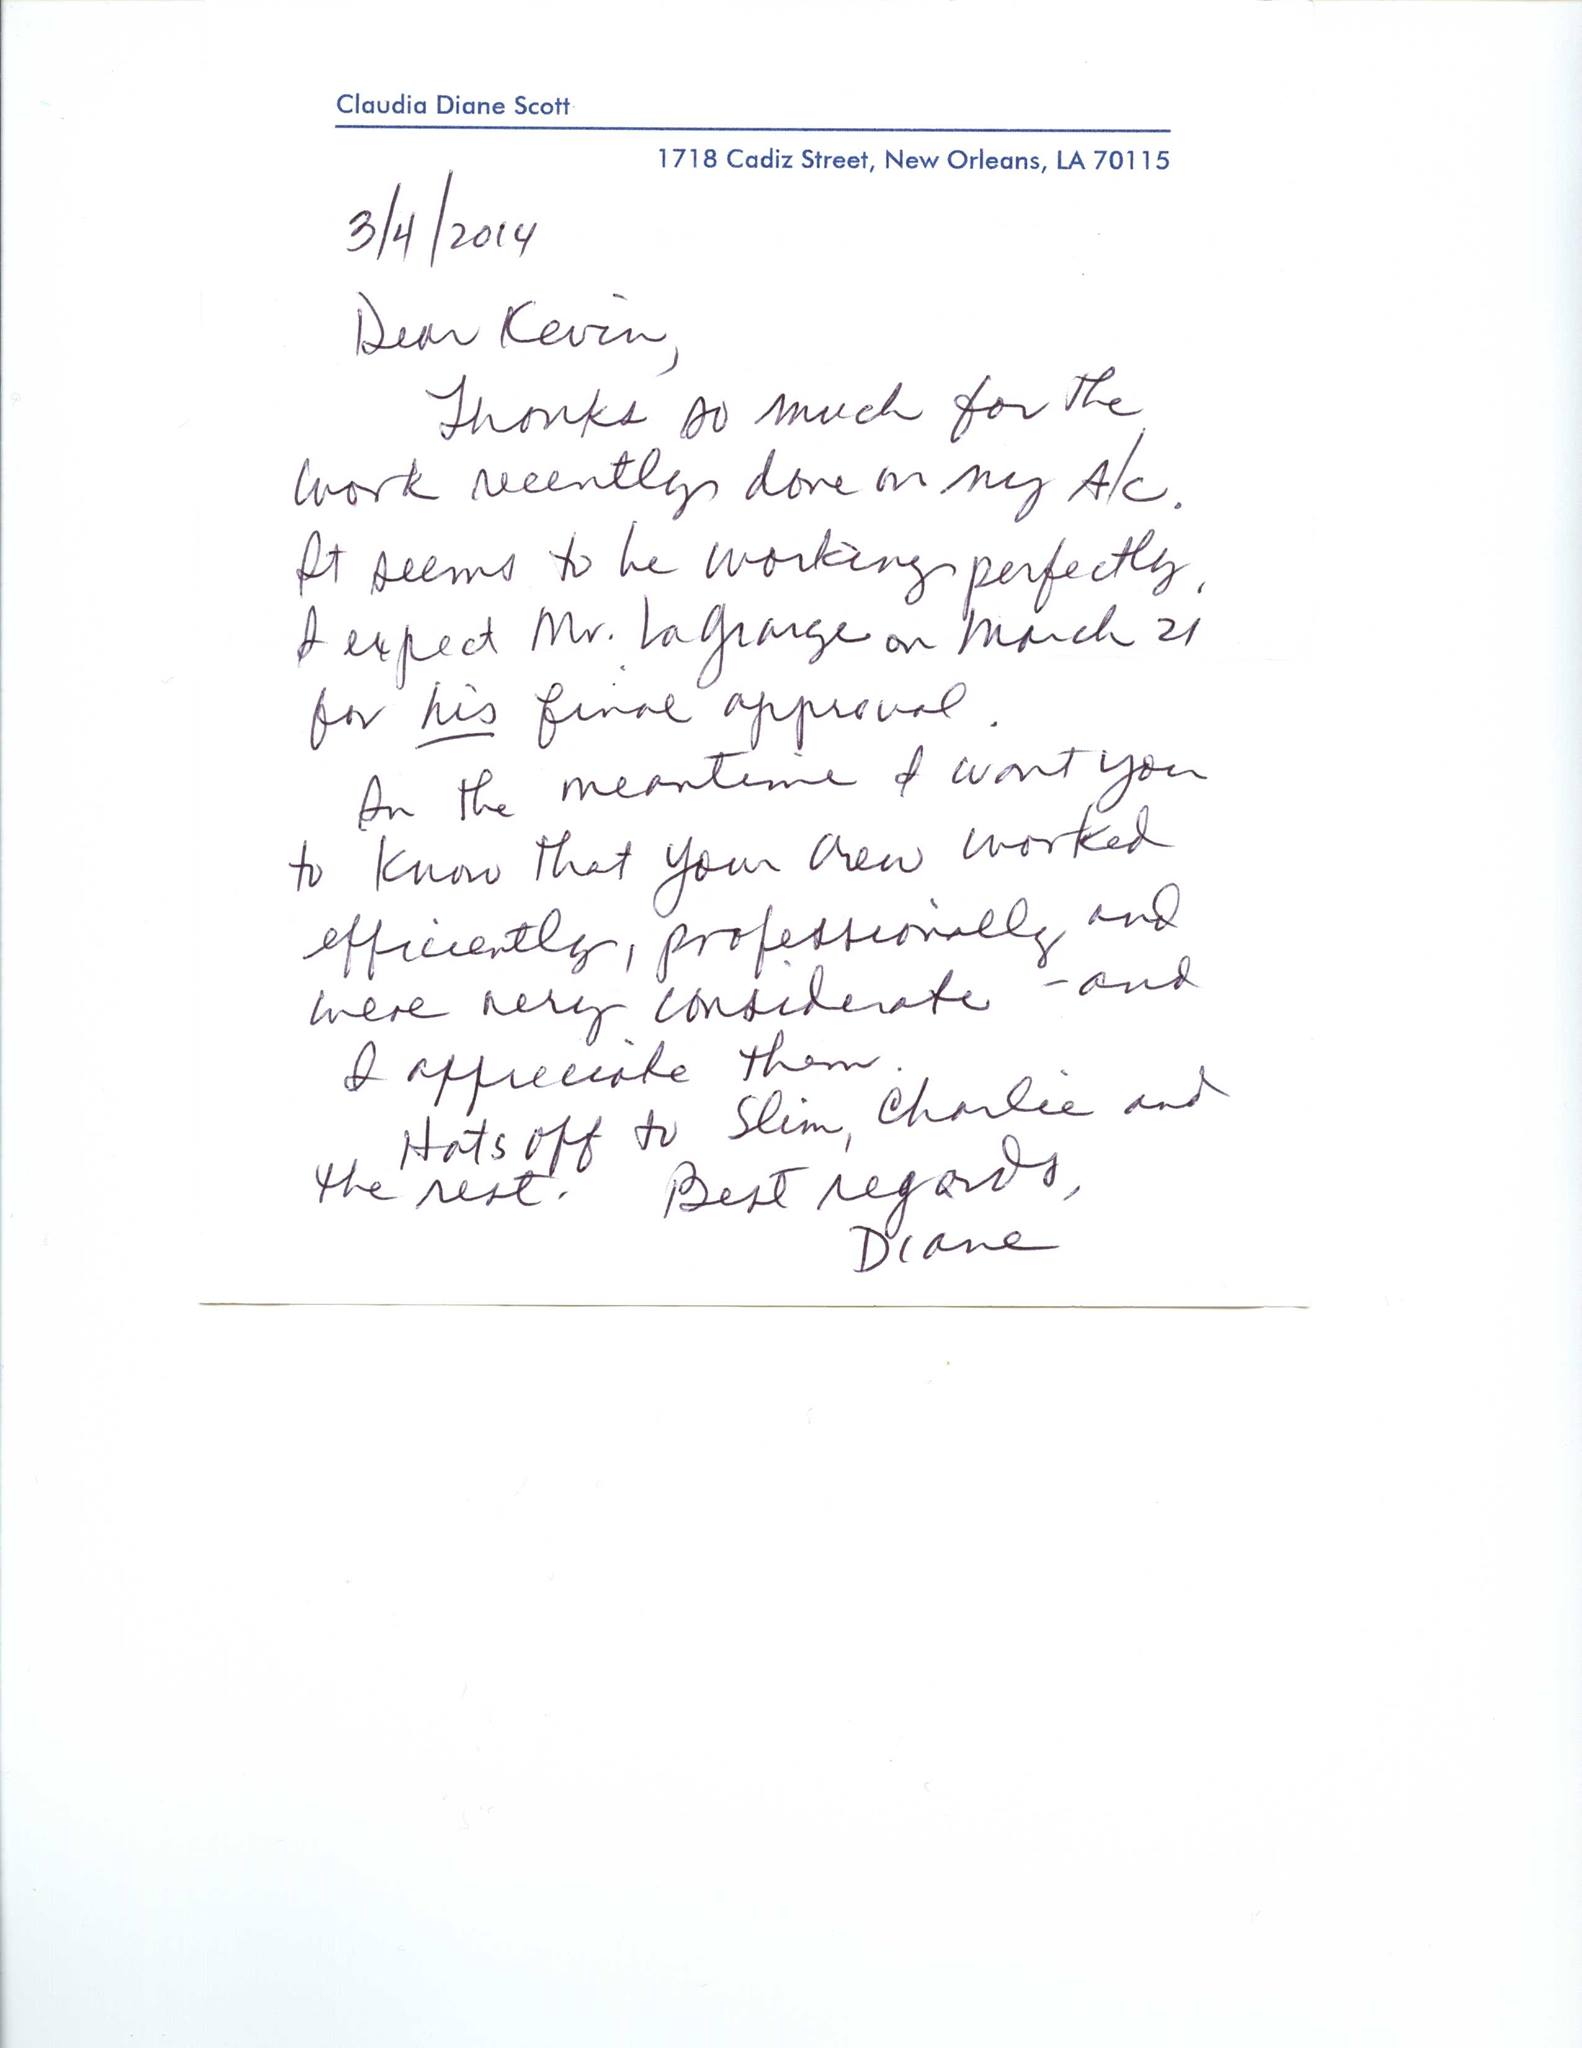 Claudia Diane Scott
1718 Cadiz Street, New Orleans, LA 70115
3/4/2014
Dear Kevin,
Thanks so much for the
work recently done on my A/C.
It seems to be working perfectly.
I expect Mr. LaGrange on March 21
for his final approval.
In the meantime I want you
to know that your crew worked
efficiently, professionally and
were very considerate - and
I appreciate them.
Hats off to Slim, Charlie and
the rest. Best regards,
Diane